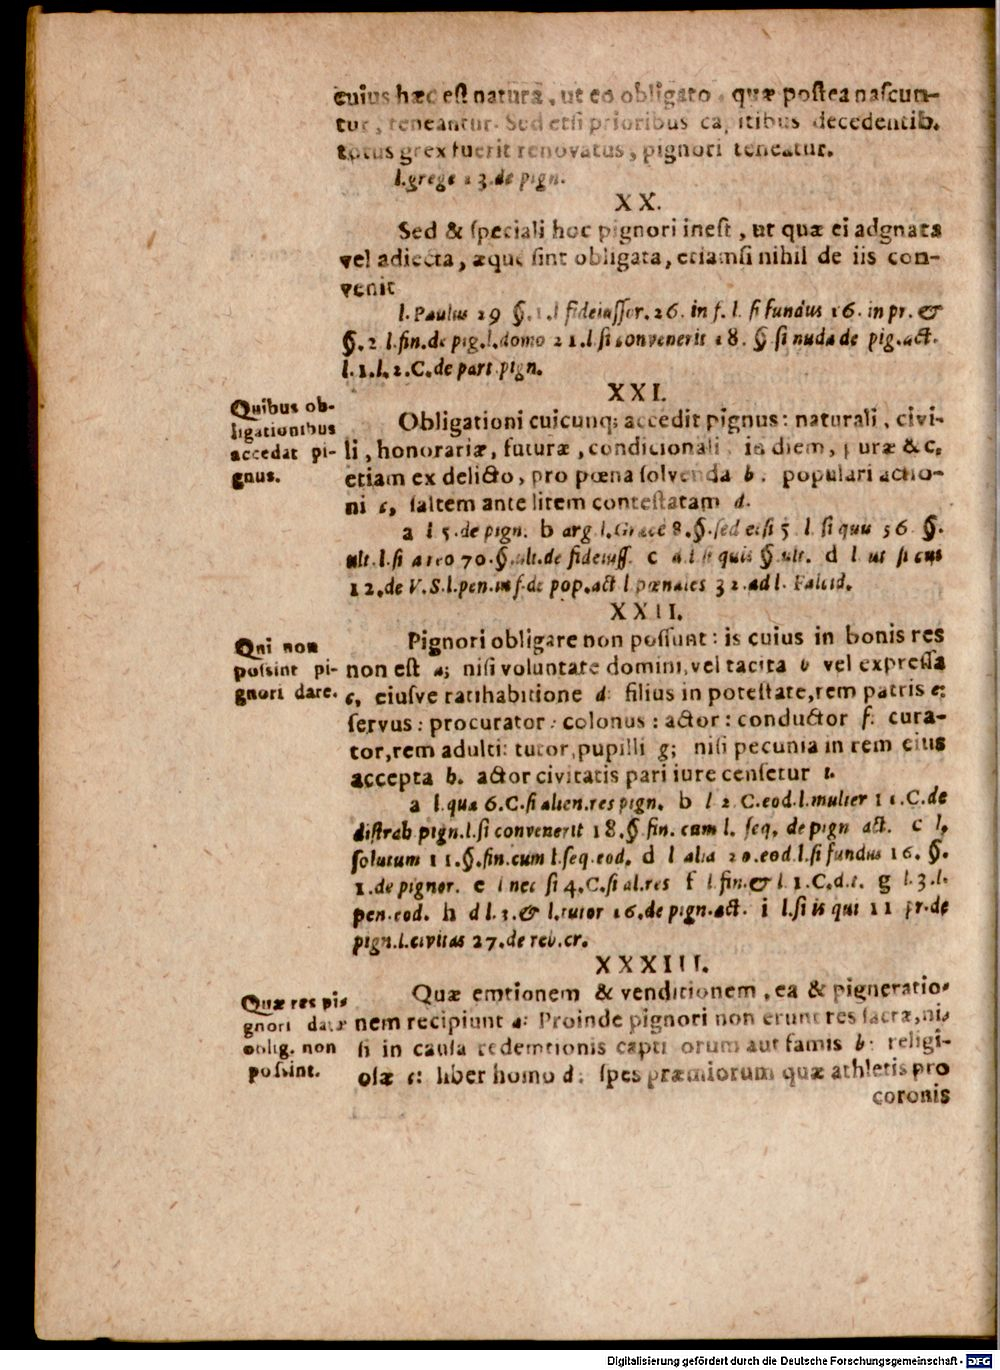 cuius hæc est natura, ut eo obligato, quæ postea nascun-
tur, teneantur. Sed etsi prioribus capitibus decedentib.
totus grex fuerit renovatus, pignori teneatur.
l. grege 13. de pign.
XX.
Sed & speciali hoc pignori inest, ut quæ ei adgnata
vel adiecta, æque sint obligata, etiamsi nihil de iis con-
venit
l. Paulus 29 §. 1. l fideiussor. 26. in f. l. si fundus 16. in pr. &
§. 2 l. fin. de pig. l. domo 21. l. si convenerit 18. § si nuda de pig. act.
l. 1. l. 2. C. de part pign.
XXI.
Quibus ob-
ligationibus
accedat pi-
gnus.
Obligationi cuicunq; accedit pignus: naturali, civi-
li, honorariæ, futuræ, condicionali, in diem, puræ &c,
etiam ex delicto, pro pœna solvenda b. populari actio-
ni c, saltem ante litem contestatam d.
a l 5. de pign. b arg. l. Græce 8. §. sed etsi 5 l. si quis 56 §.
ult. l. si a reo 70. §. ult. de fideiuss. c d l si quis §. ult. d l ut si cui
12. de V. S. l. pen. in f. de pop. act l pœnales 32. ad l. Falcid.
XXII.
Qui non
possint pi-
gnori dare.
Pignori obligare non possunt: is cuius in bonis res
non est a; nisi voluntate domini, vel tacita b vel expressa
c, eiusve ratihabitione d: filius in potestate, rem patris e:
servus: procurator: colonus: actor: conductor f: cura-
tor, rem adulti: tutor, pupilli g; nisi pecunia in rem eius
accepta h. actor civitatis pari iure censetur i.
a l. quæ 6. C. si alien. res pign. b l 2 C. eod. l. mulier 11. C. de
distrah pign. l. si convenerit 18. §. fin. cum l. seq. de pign act. c l,
solutum 11. §. fin. cum l. seq. eod. d l alia 20. eod. l. si fundus 16. §.
1. de pignor. e l nec si 4. C. si al. res f l. fin. & l. 1. C. d. t. g l. 3. l.
pen. eod. h d l. 3. & l. tutor 16. de pign. act. i l. si is qui 11 pr. de
pign. l. civitas 27. de reb. cr.
XXXIII.
Quæ res pi-
gnori datæ
oblig. non
possint.
Quæ emtionem & venditionem, ea & pigneratio-
nem recipiunt a: Proinde pignori non erunt res sacræ, ni-
si in causa redemtionis captivorum aut famis b: religi-
osæ c: liber homo d: spes præmiorum quæ athletis pro
coronis
Digitalisierung gefördert durch die Deutsche Forschungsgemeinschaft - DFG